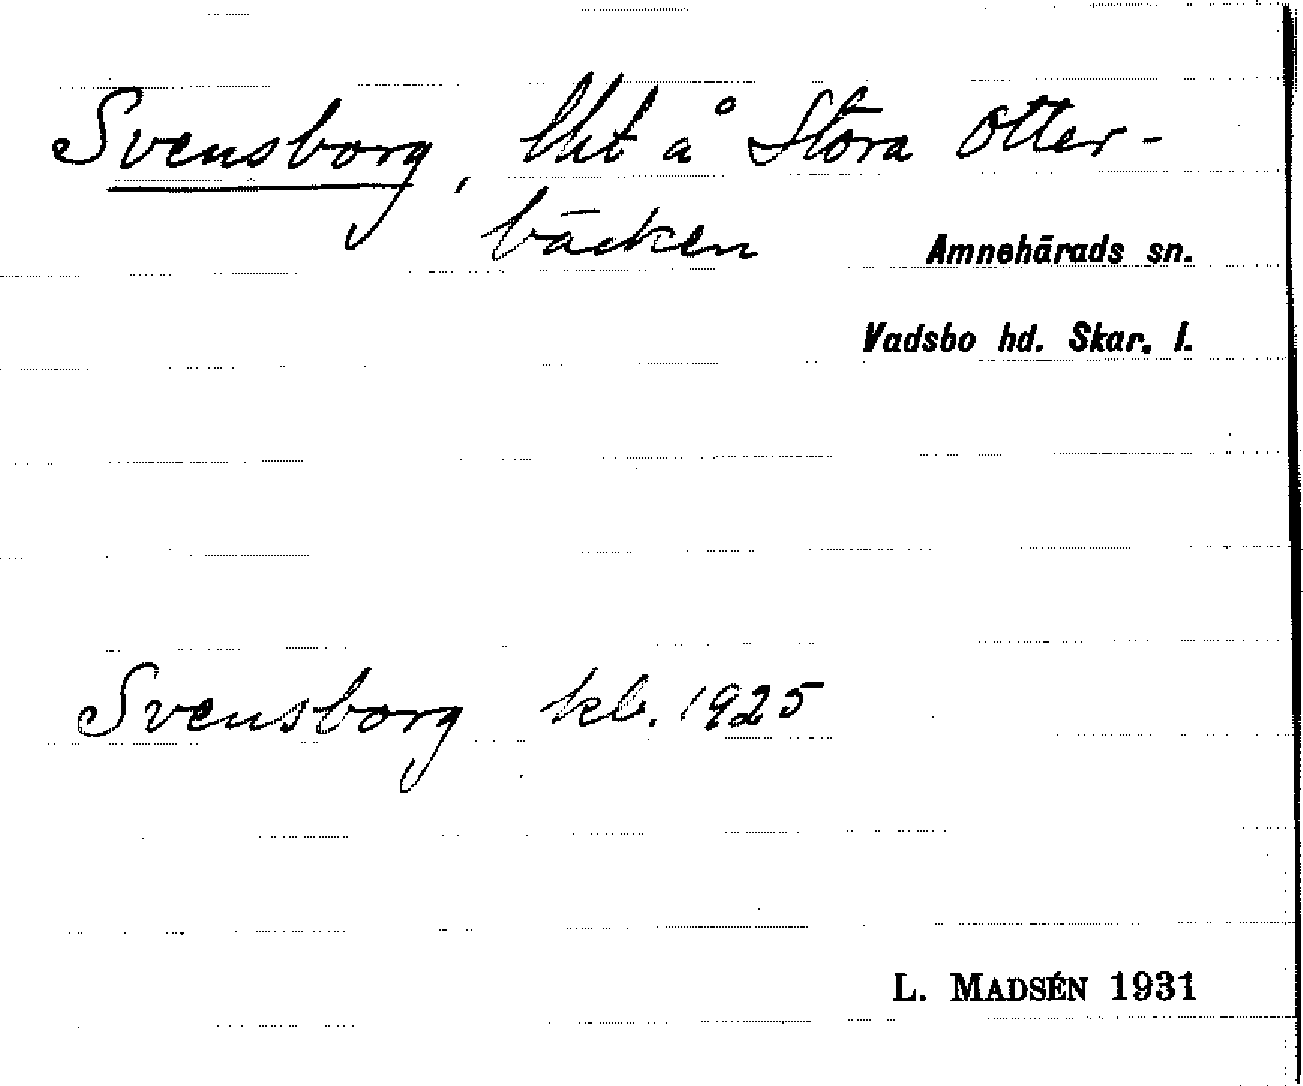 Svensborg, lht å Stora Otter-
bäcken
Amnehärads sn.
Vadsbo hd. Skar. l.
Svensborg kb. 1925
L. MADSÉN 1931